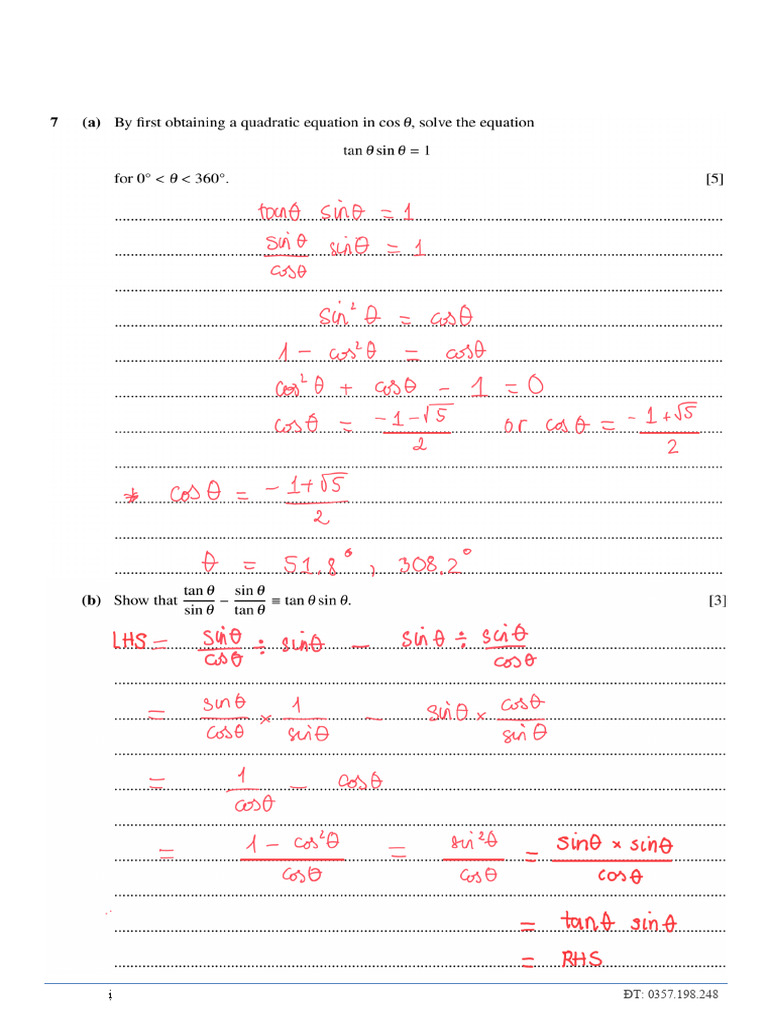 7 (a) By first obtaining a quadratic equation in cos θ, solve the equation
tan θ sin θ = 1
for 0° < θ < 360°. [5]
tanθ sinθ = 1
sinθ/cosθ sinθ = 1
sin²θ = cosθ
1 - cos²θ = cosθ
cos²θ + cosθ - 1 = 0
cosθ = (-1-√5)/2 or cosθ = (-1+√5)/2
* cosθ = (-1+√5)/2
θ = 51.8°, 308.2°
(b) Show that tan θ/sin θ − sin θ/tan θ ≡ tan θ sin θ. [3]
LHS = sinθ/cosθ ÷ sinθ - sinθ ÷ sinθ/cosθ
= sinθ/cosθ × 1/sinθ - sinθ × cosθ/sinθ
= 1/cosθ - cosθ
= (1 - cos²θ)/cosθ = sin²θ/cosθ = (sinθ × sinθ)/cosθ
= tanθ sinθ
= RHS
ĐT: 0357.198.248